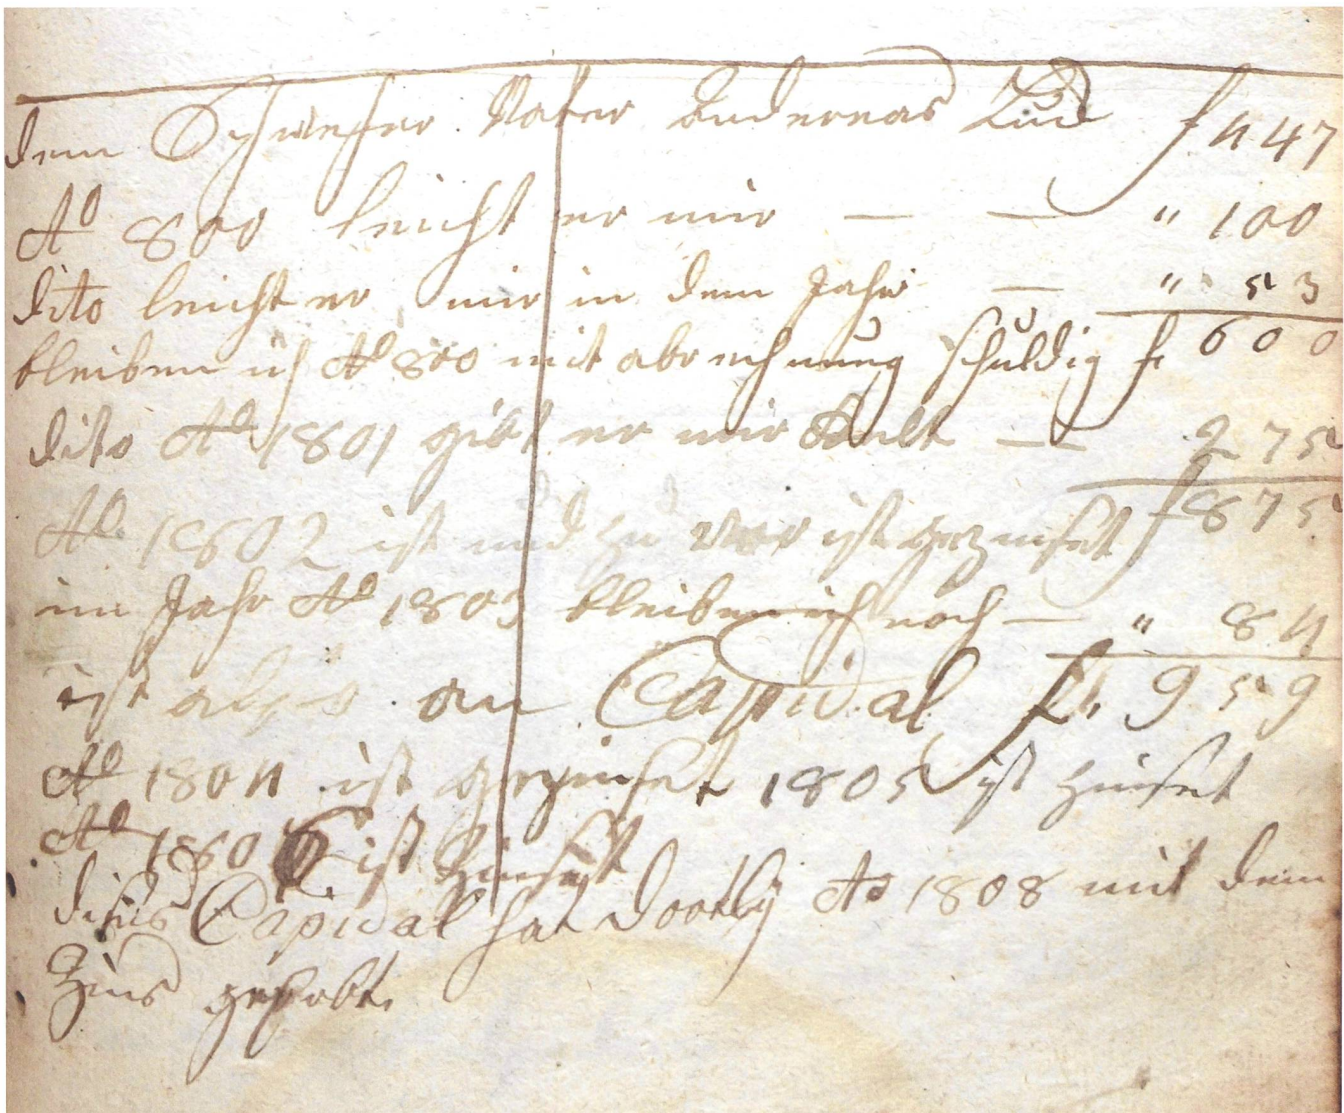 dem Schweher Vater Andereas Lud f 447
Ao 800 leicht er mir — — " 100
dito leicht er mir in dem Jahr — " 53
bleiben ich Ao 800 mit abrechnung schuldig f 600
dito Ao 1801 gibt er mir — 275
Ao 1802 ist und zu vor ist gezinset f 875
im Jahr Ao 1803 bleiben ich noch — " 84
ist also an Capidal fl. 959
Ao 1804 ist gezinset 1805 ist zinset
Ao 1806 ist zinset
dises Capidal hat Ao 1808 mit dem
Zins gehabt.